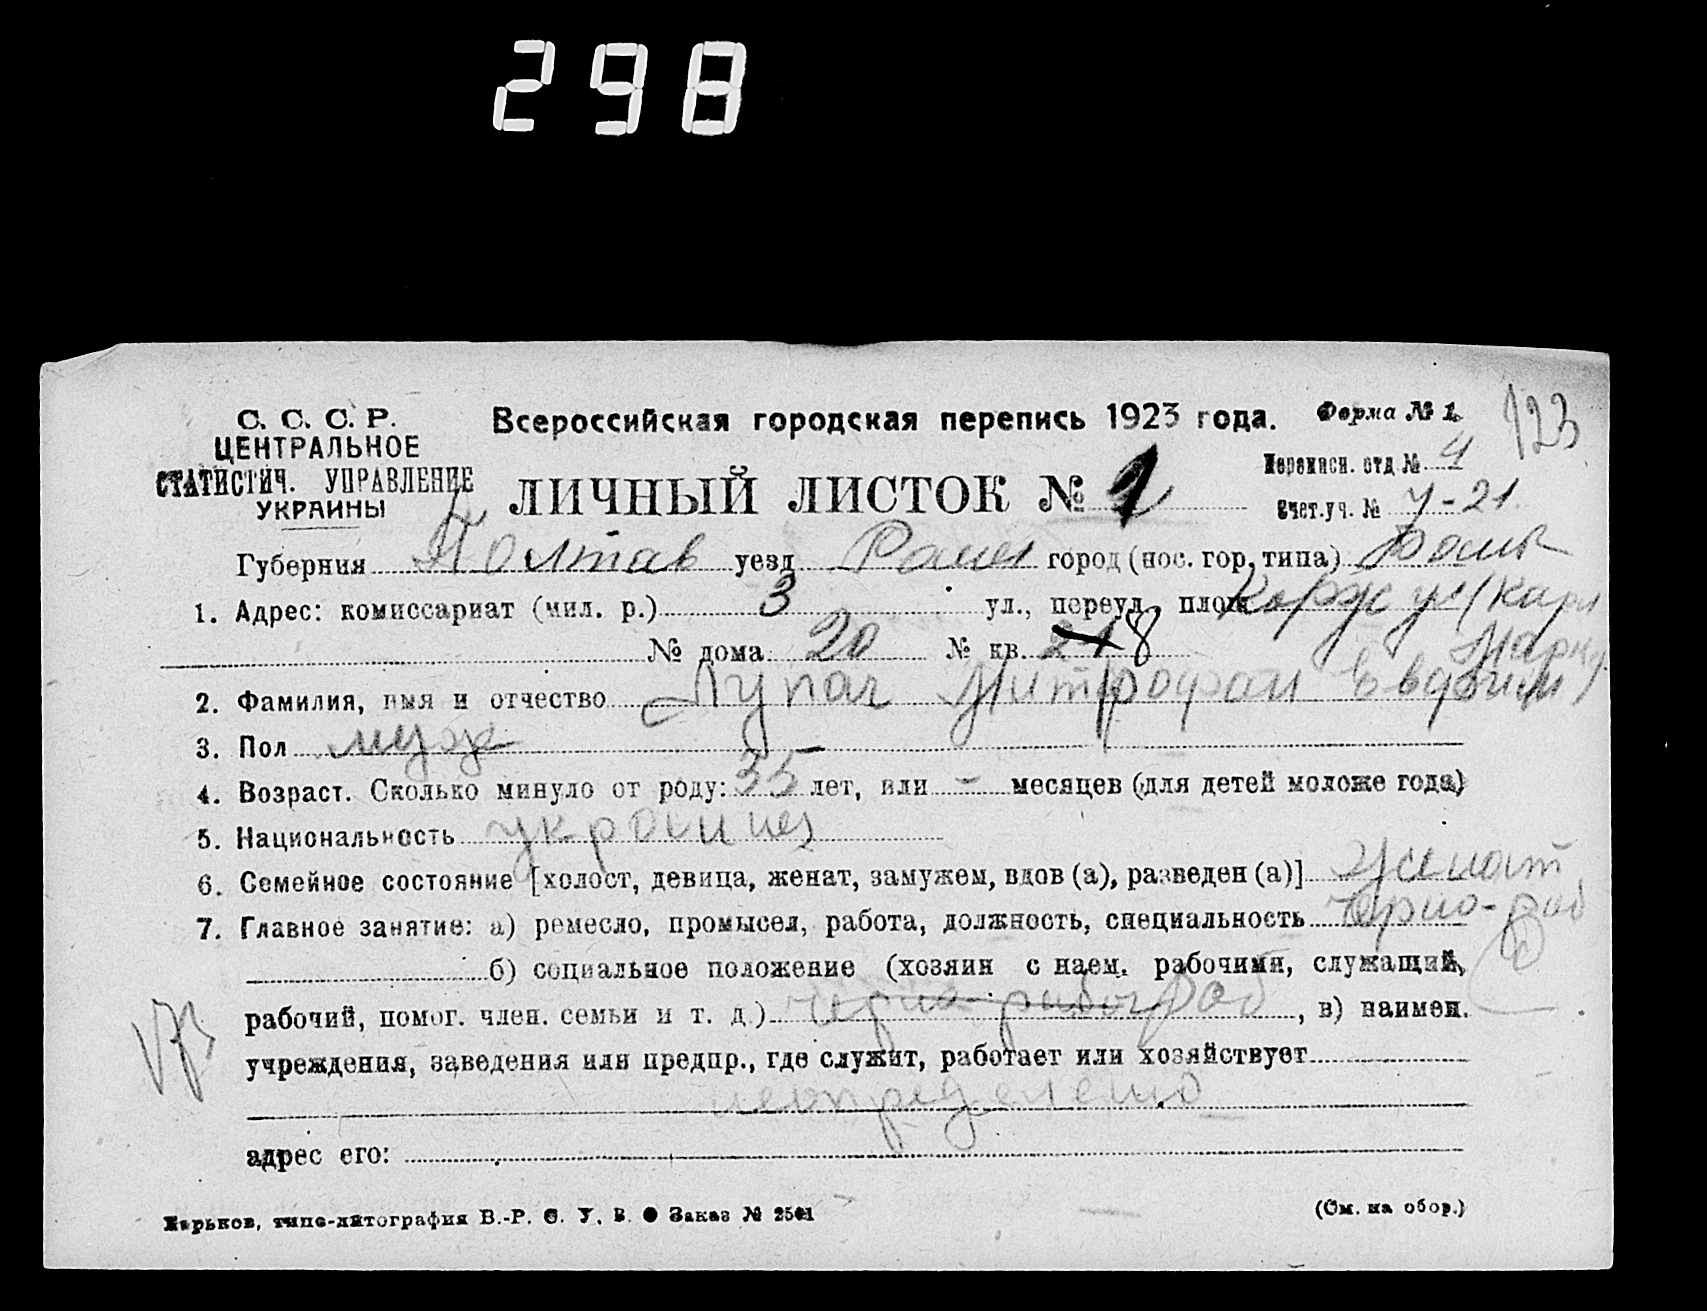 298
С. С. С. Р.
ЦЕНТРАЛЬНОЕ
СТАТИСТИЧ. УПРАВЛЕНИЕ
УКРАИНЫ
Всероссийская городская перепись 1923 года.
Форма № 1.
123
ЛИЧНЫЙ ЛИСТОК №
Переписн. отд № 4
Счет.уч. № 7-21
Губерния Полтав уезд Ромен город (пос. гор. типа) Ромн
1. Адрес: комиссариат (мил. р.) 3 ул., переул., площ. ул (Карл
Маркс)
№ дома 20 № кв. 8
2. Фамилия, имя и отчество Лупач Митрофан Евдоким
3. Пол муж
4. Возраст. Сколько минуло от роду: 35 лет, или – месяцев (для детей моложе года)
5. Национальность украинец
6. Семейное состояние [холост, девица, женат, замужем, вдов (а), разведен (а)] Женат
7. Главное занятие: а) ремесло, промысел, работа, должность, специальность черно-раб
б) социальное положение (хозяин с наем. рабочими, служащий,
рабочий, помог. член. семьи и т. д.) черно-рабоч раб , в) наимен.
173
учреждения, заведения или предпр., где служит, работает или хозяйствует
неопределено
адрес его:
Харьков, типо-литография В.-Р. С. У. В. Заказ № 2501
(См. на обор.)